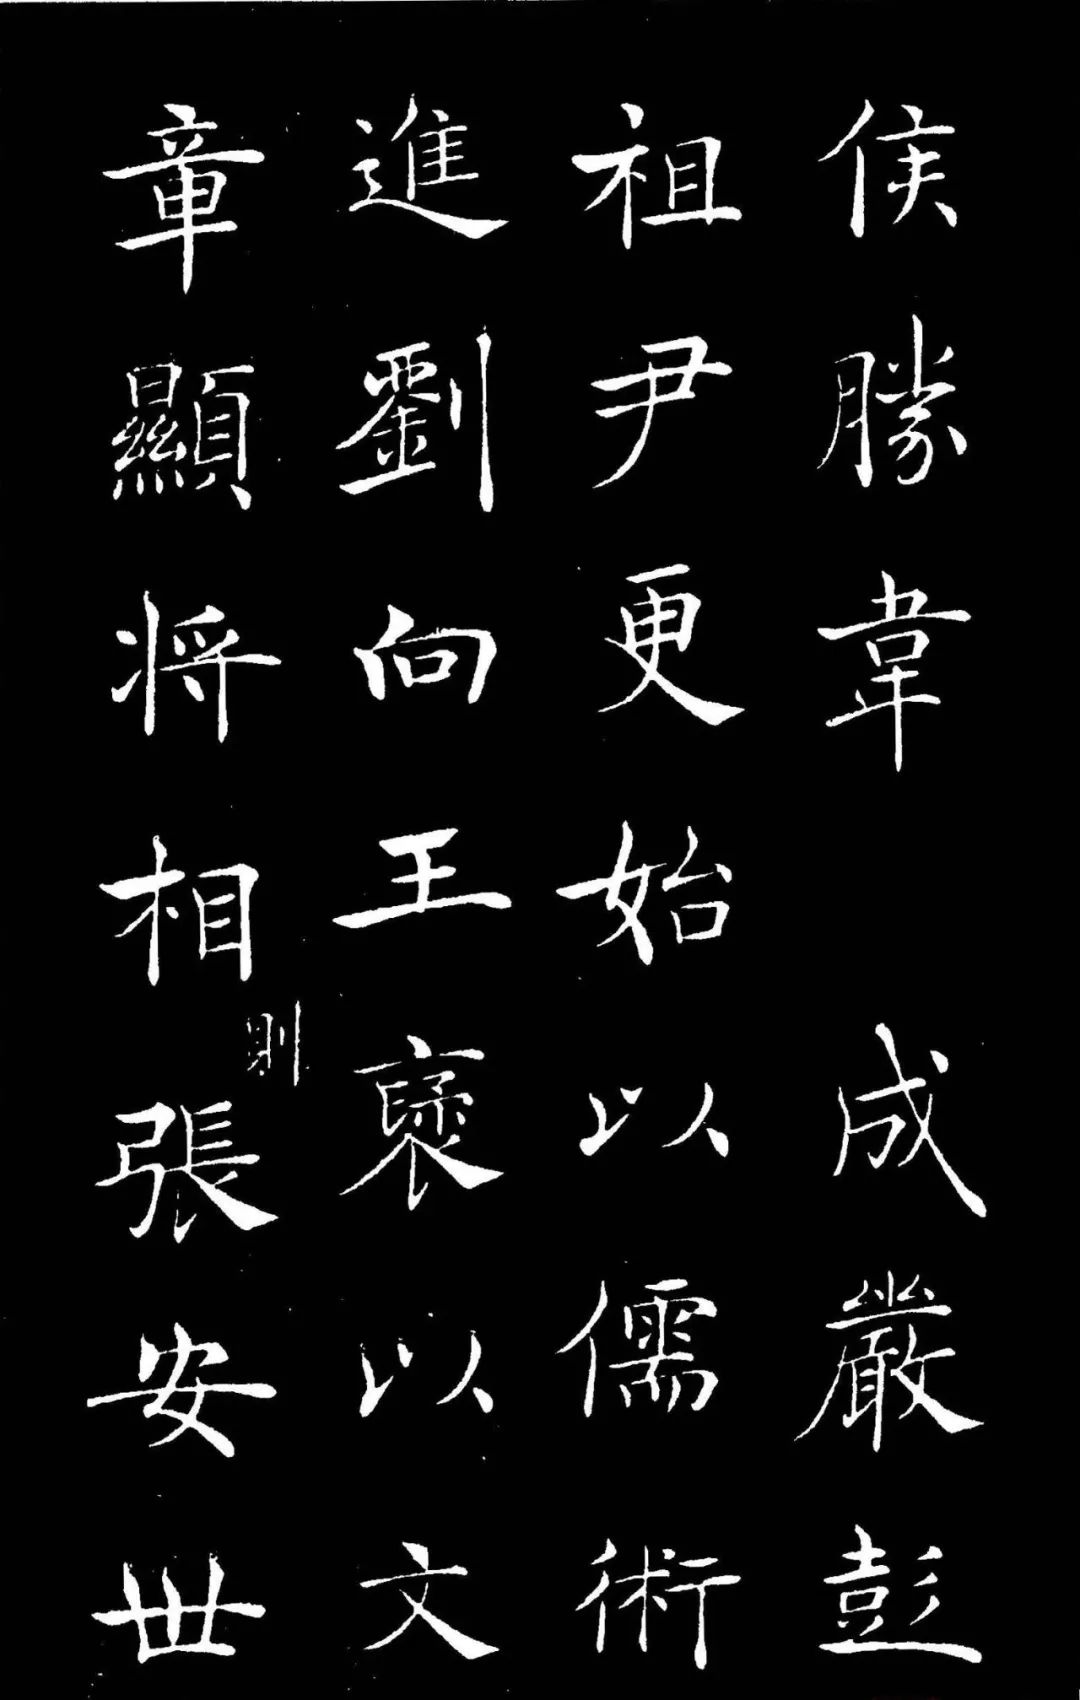 侯勝韋 成嚴彭
祖尹更始以儒術
進劉向王襃以文
章顯將相則張安世